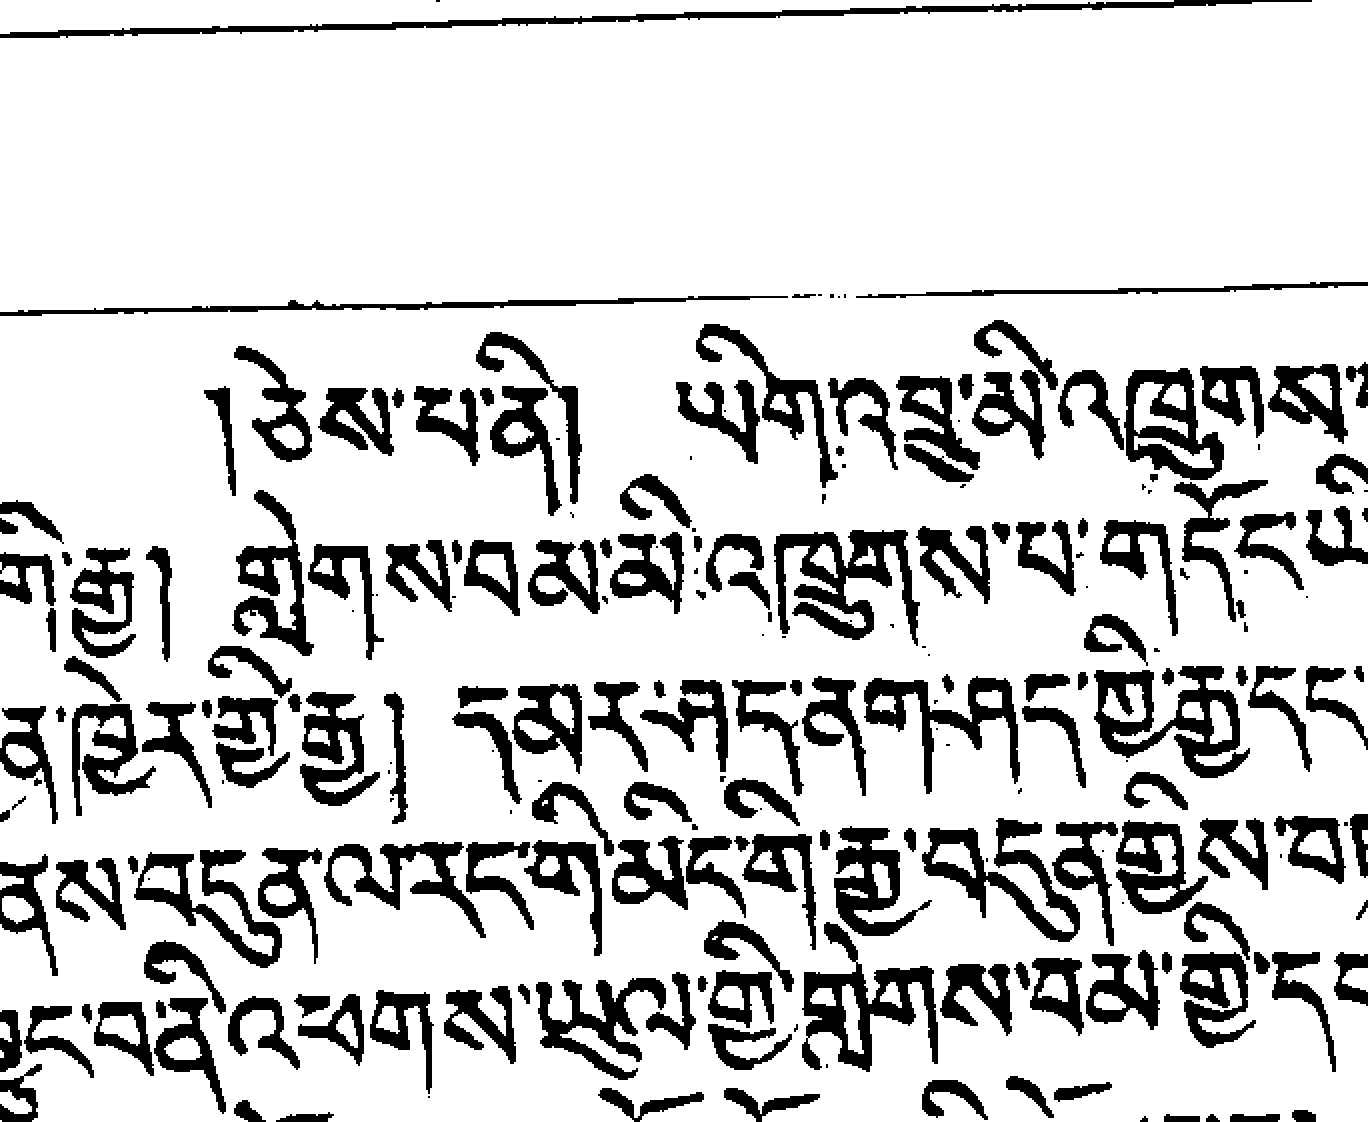 །ཅེས་པ་ནི། ཡིག་འབྲུ་མི་འཁྲུགས་
གི་རྒྱ། གླེགས་བམ་མི་འཁྲུགས་པ་གདོང་ཡི
ན་ཁྱེར་གྱི་རྒྱ། དམར་ཤད་ནག་ཤད་ཀྱི་རྒྱ་དང་
ནས་བདུན་ལ་རང་གི་མིང་གི་རྒྱ་བདུན་གྱིས་བ
བྱུང་བ་ནི་འཕགས་ཡུལ་གྱི་གླེགས་བམ་གྱི་ད